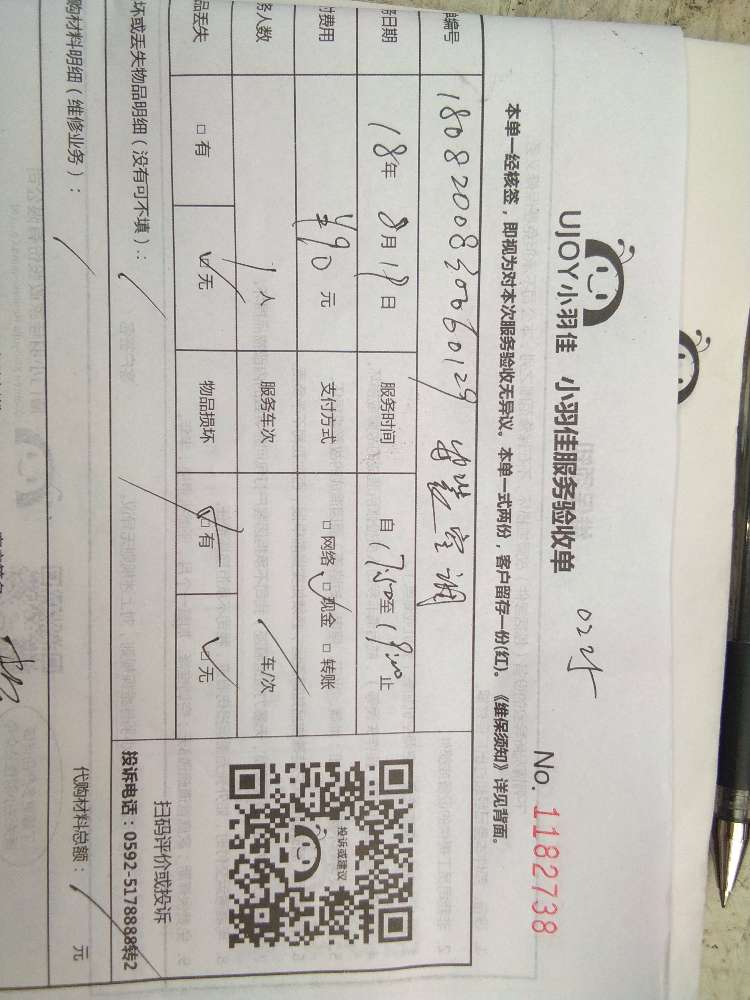 UJOY小羽佳 小羽佳服务验收单
No. 1182738
本单一经核签，即视为对本次服务验收无异议。本单一式两份，客户留存一份(红)。《维保须知》详见背面。
编号 1808200830060129 空调
务日期 18年 8月19日 服务时间： 自 17:50至 19:00止
付费用 ¥90 元 支付方式 □网络 ☑现金 □转账
务人数 1人 服务车次 / 车/次
品丢失 □有 ☑无 物品损坏 □有 ☑无
坏或丢失物品明细（没有可不填）： /
购材料明细（维修业务）： / 代购材料总额： / 元
投诉或建议
扫码评价或投诉
投诉电话：0592-5178888转2